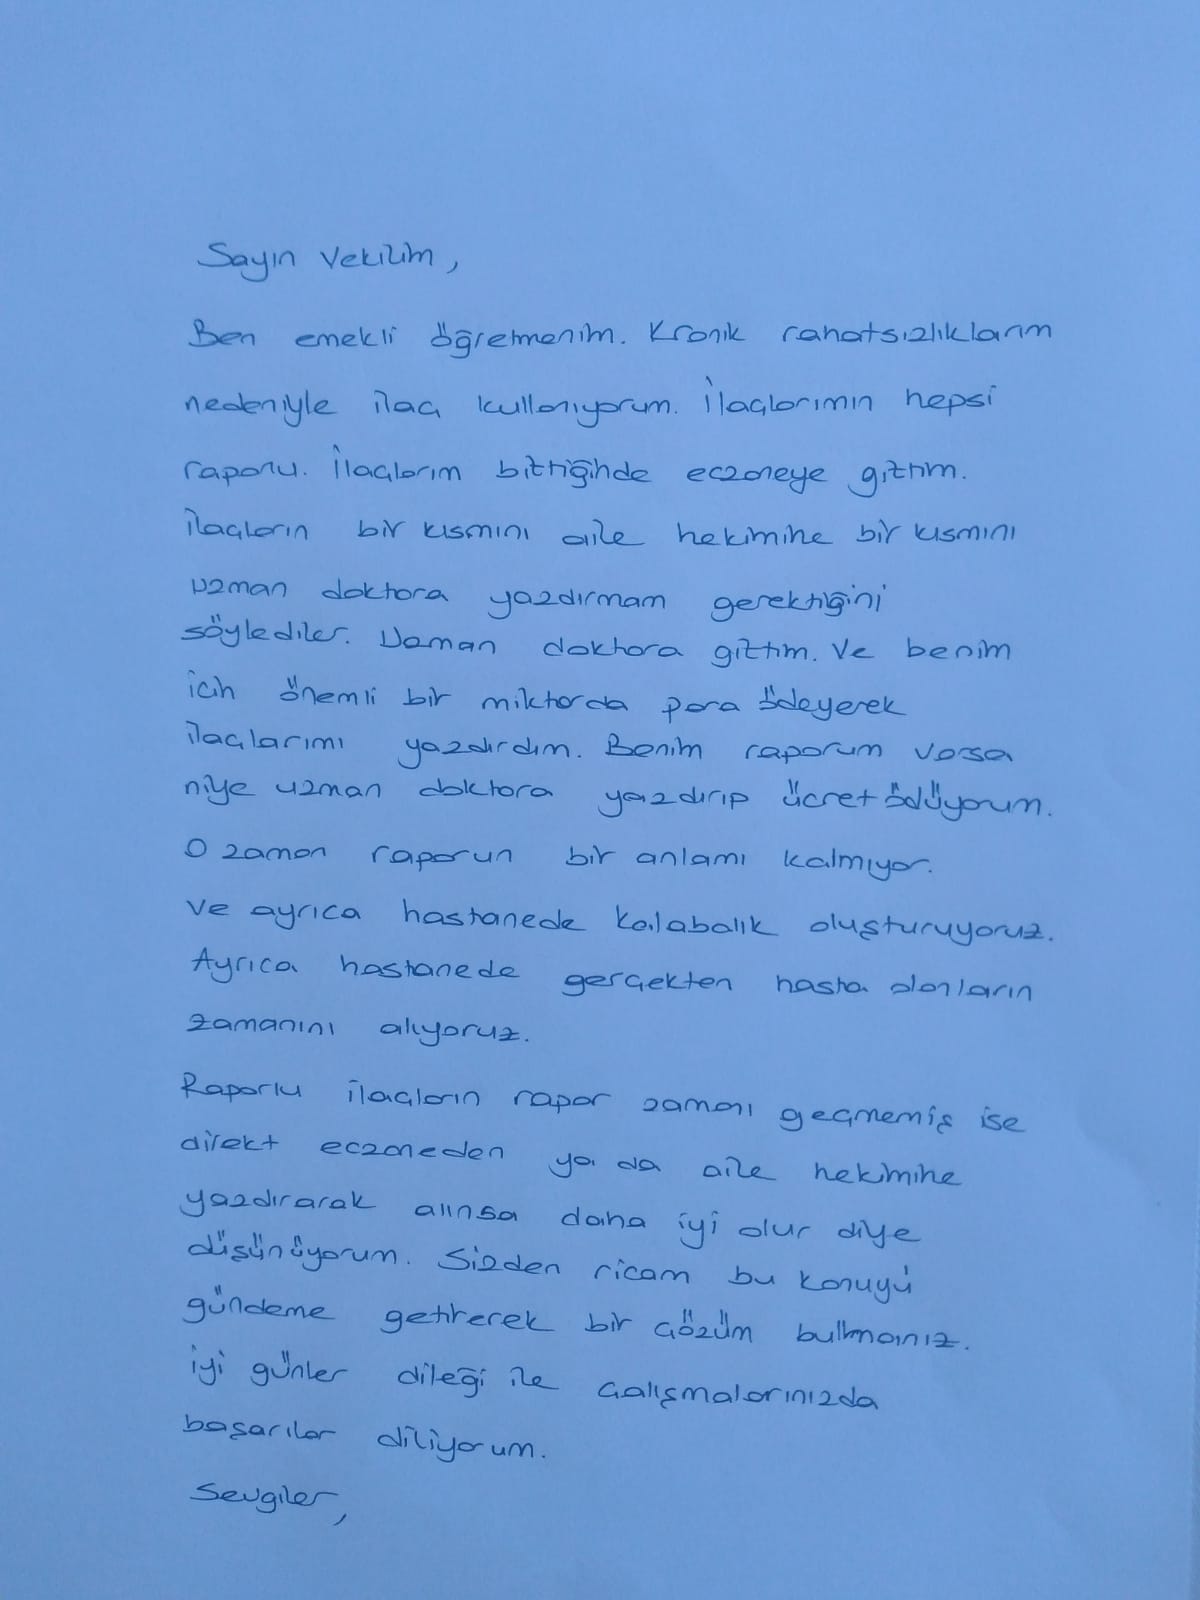 Sayın Vekilim,
Ben emekli öğretmenim. Kronik rahatsızlıklarım
nedeniyle ilaç kullanıyorum. İlaçlarımın hepsi
raporlu. İlaçlarım bittiğinde eczaneye gittim.
ilaçların bir kısmını aile hekimine bir kısmını
uzman doktora yazdırmam gerektiğini
söylediler. Uzman doktora gittim. Ve benim
için önemli bir miktarda para ödeyerek
ilaçlarımı yazdırdım. Benim raporum varsa
niye uzman doktora yazdırıp ücret ödüyorum.
O zaman raporun bir anlamı kalmıyor.
Ve ayrıca hastanede kalabalık oluşturuyoruz.
Ayrıca hastanede gerçekten hasta olanların
zamanını alıyoruz.
Raporlu ilaçların rapor zamanı geçmemiş ise
direkt eczaneden ya da aile hekimine
yazdırarak alınsa daha iyi olur diye
düşünüyorum. Sizden ricam bu konuyu
gündeme getirerek bir çözüm bulmanız.
iyi günler dileği ile çalışmalarınızda
başarılar diliyorum.
Sevgiler,